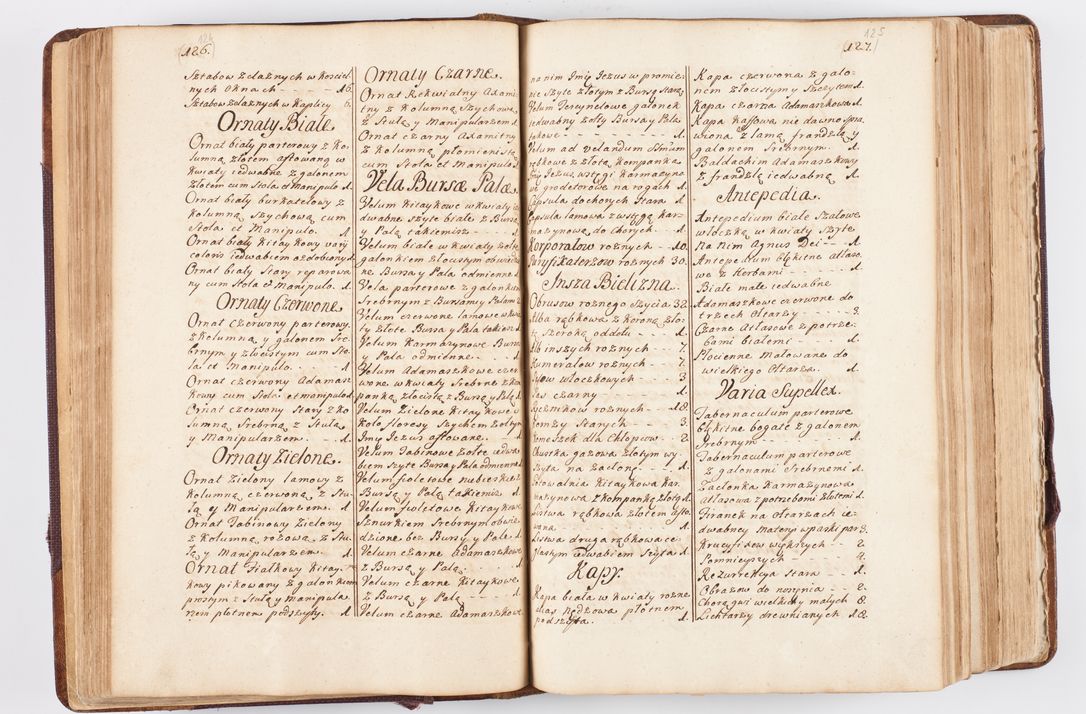 126
(126.)
Sztabow Zelaznych w Kosciel-
nych Oknach - - - - - 16.
Sztabow Zelaznych w Kaplicy 6.
Ornaty Białe
Ornat biały parterowy z Ko-
lumną złotem aftowaną w
kwiaty iedwabne z galonem
złotem cum Stola et Manipulo 1.
Ornat biały burkatelowy z
Kolumną szychową cum
Stola et Manipulo. 1.
Ornat biały Kitaykowy varij
coloris iedwabiem ozdobiony 1.
Ornat biały Stary reparowa
ny cum Stola et Manipulo. 1.
Ornaty Czerwone.
Ornat Czerwony parterowy
z Kolumną y galonem Sre-
brnym y złocistym cum Sto-
la et Manipulo. - - - 1.
Ornat czerwony Adamasz
kowy cum Stola et manipulo 1.
Ornat czerwony Stary z Ko
lumną Srebrną z Stułą
y Manipularzem. - - 1.
Ornaty Zielone.
Ornat Zielony lamowy z
Kolumną czerwoną z Stu-
łą y Manipularzem. - 1.
Ornat Tabinowy Zielony
z Kolumną rożową z Stu-
łą y Manipularzem - 1.
Ornat Fiałkowy Kitay-
kowy pikowany z galonkiem
prostym z Stułą y Manipula
rzem płotnem podszyty. 1.
Ornaty Czarne.
Ornat Rekwialny Adami-
tny z Kolumną Szychową
z Stułą y Manipularzem 1.
Ornat czarny Adamitny
z Kolumną płomienistą
cum Stola et Manipulo 1.
Vela Bursæ Palæ.
Velum Kitaykowe w kwiaty ie
dwabne szyte białe z Bursą
y Palą takiemisz - - 1.
Velum białe w kwiaty zołte
galonkiem złocistym obwiedzio
ne Bursa y Pala odmienne 1.
Vela parterowe z galonkiem
Srebrnym z Bursami y Palami 2.
Velum czerwone lamowe w kwia
ty złote Bursa y Pala takiesz 1.
Velum Karmazynowe Bursa
y Pala odmienne. - - 1.
Velum Adamaszkowe czer
wone w kwiaty Srebrne z Kom
panką złocistą z Bursą y Palą 1.
Velum Zielone Kitaykowe y
koło floresy Szychem żołtym
Imię Jezus aftowane. - 1.
Velum Tabinowe zołte iedwa
biem szyte Bursa y Pala odmienna 1.
Velum fioletowe niebieskie z
Bursą y Palą takiemisz 1.
Velum fioletowe Kitaykowe
Sznurkiem Srebrnym obwie
dzione bez Bursy y Pale 1.
Velum czarne Adamaszkowe
z Bursą y Palą. - - 1.
Velum czarne Kitaykowe
z Bursą y Palą - - - 1.
Velum czarne Adamaszkowe
125
(127.)
na nim Imię Jezus w promie-
nie szyte złotym z Bursą Starą 1.
Velum Tercynelowe galonek
iedwabny zołty Bursa y Pala
takowe - - - - - 1.
Velum ad Velandum Ostium
rąbkowe z złotą Kompanką
Imię Jezus, wstęgi karmazyno
we grodetorowe na rogach 1.
Kapsula do chorych Stara 1.
Kapsula lamowa z wstęgą kar-
mazynową do Chorych. - 1.
Korporałow rożnych 10.
Puryfikaterzow rożnych 30.
Insza Bielizna.
Obrusow rożnego szycia 32.
Alba rąbkowa z koroną zło-
tą Szeroką od dołu - - 1.
Alb inszych rożnych - - 7.
Humerałow rożnych. - - 7.
Pasow włoczkowych - - - 3
Pas czarny - - - - - 1.
Ręcznikow rożnych - - 18.
Komży Starych - - - 3.
Komeszek dla Chłopcow - 2
Chustka gazowa złotym wy-
szyta na Zasłonę. - - 1.
Gotowalnia Kitaykowa kar-
mazynowa z kompanką złotą 1.
Listwa rąbkowa złotem afto
wana - - - - - 1.
Listwa druga rąbkowa ce
glastym iedwabiem szyta 1.
Kapy.
Kapa biała w kwiaty rozne
pas pąsowa płotnem
podszyta. - - - - 1.
Kapa czerwona z galo-
nem złocistym y Szczytem 1.
Kapa czarna Adamaszkowa 1.
Kapa kaffowa nie dawno spra
wiona z lamą frandzlą y
galonem Srebrnym. - 1.
Baldachim Adamaszkowy
z frandzlą iedwabną 1.
Antepedia.
Antepedium białe Szalowe
włoczką w kwiaty szyte
na nim Agnus Dei - - 1.
Antependium błękitne atlaso-
we z Herbami - - - 1.
Białe małe iedwabne
Adamaszkowe czerwone do
trzech Ołtarzy - - - 3.
Czarne Atlasowe z potrze-
bami białemi - - 1.
Płocienne malowane do
wielkiego Ołtarza. - 1.
Varia Supellex.
Tabernaculum parterowe
błękitne bogate z galonem
Srebrnym - - - - 1.
Tabernaculum parterowe
z galonami Srebrnemi 1.
Zasłonka Karmazynowa
Atlasowa z potrzebami złotemi 1.
Firanek na Ołtarzach ie-
dwabney Materyi w paski par 3.
Krucyfixow większych - 2.
Pomnieyszych - - - 4.
Rezurrekcya Stara - 1.
Obrazow do noszenia - - 2.
Chorągwi wielkich y małych 8.
Lichtarzy drewnianych 18.